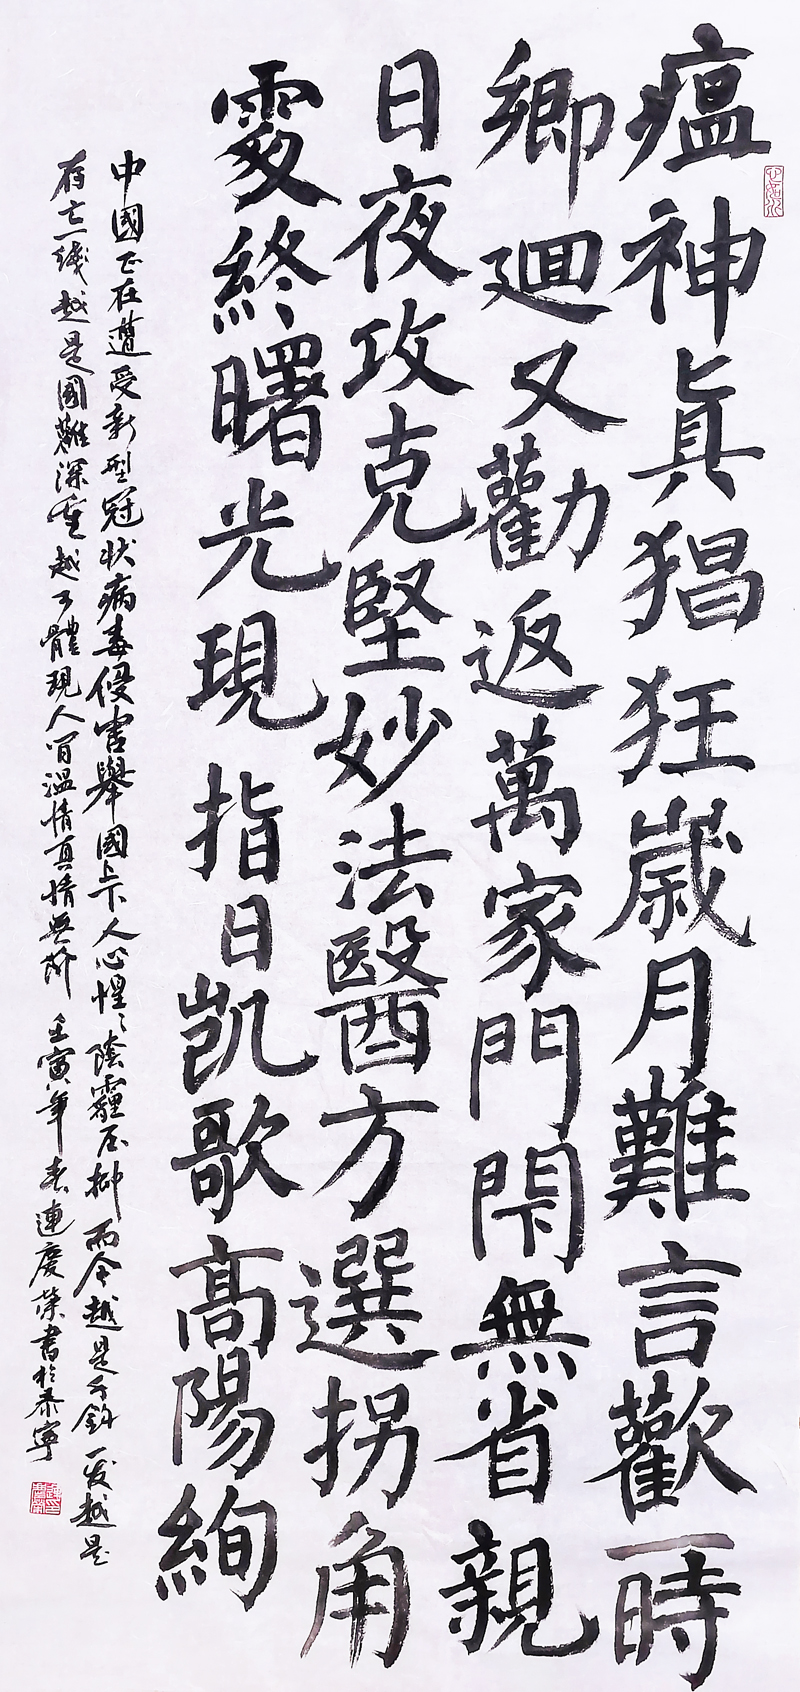 瘟神真猖狂歲月難言歡一時
鄉廻又勸返萬家門閇無省親
日夜攻克堅妙法醫方選拐角
雯終曙光現指日凱歌高陽絢
中國正在遭受新型冠狀病毒侵害舉國上下人心惶〻陰霾压抑而今越是千鈞一发越是
存亡一线越是國難深重越可體現人间溫情真情無价壬寅年春連慶榮書於泰寧